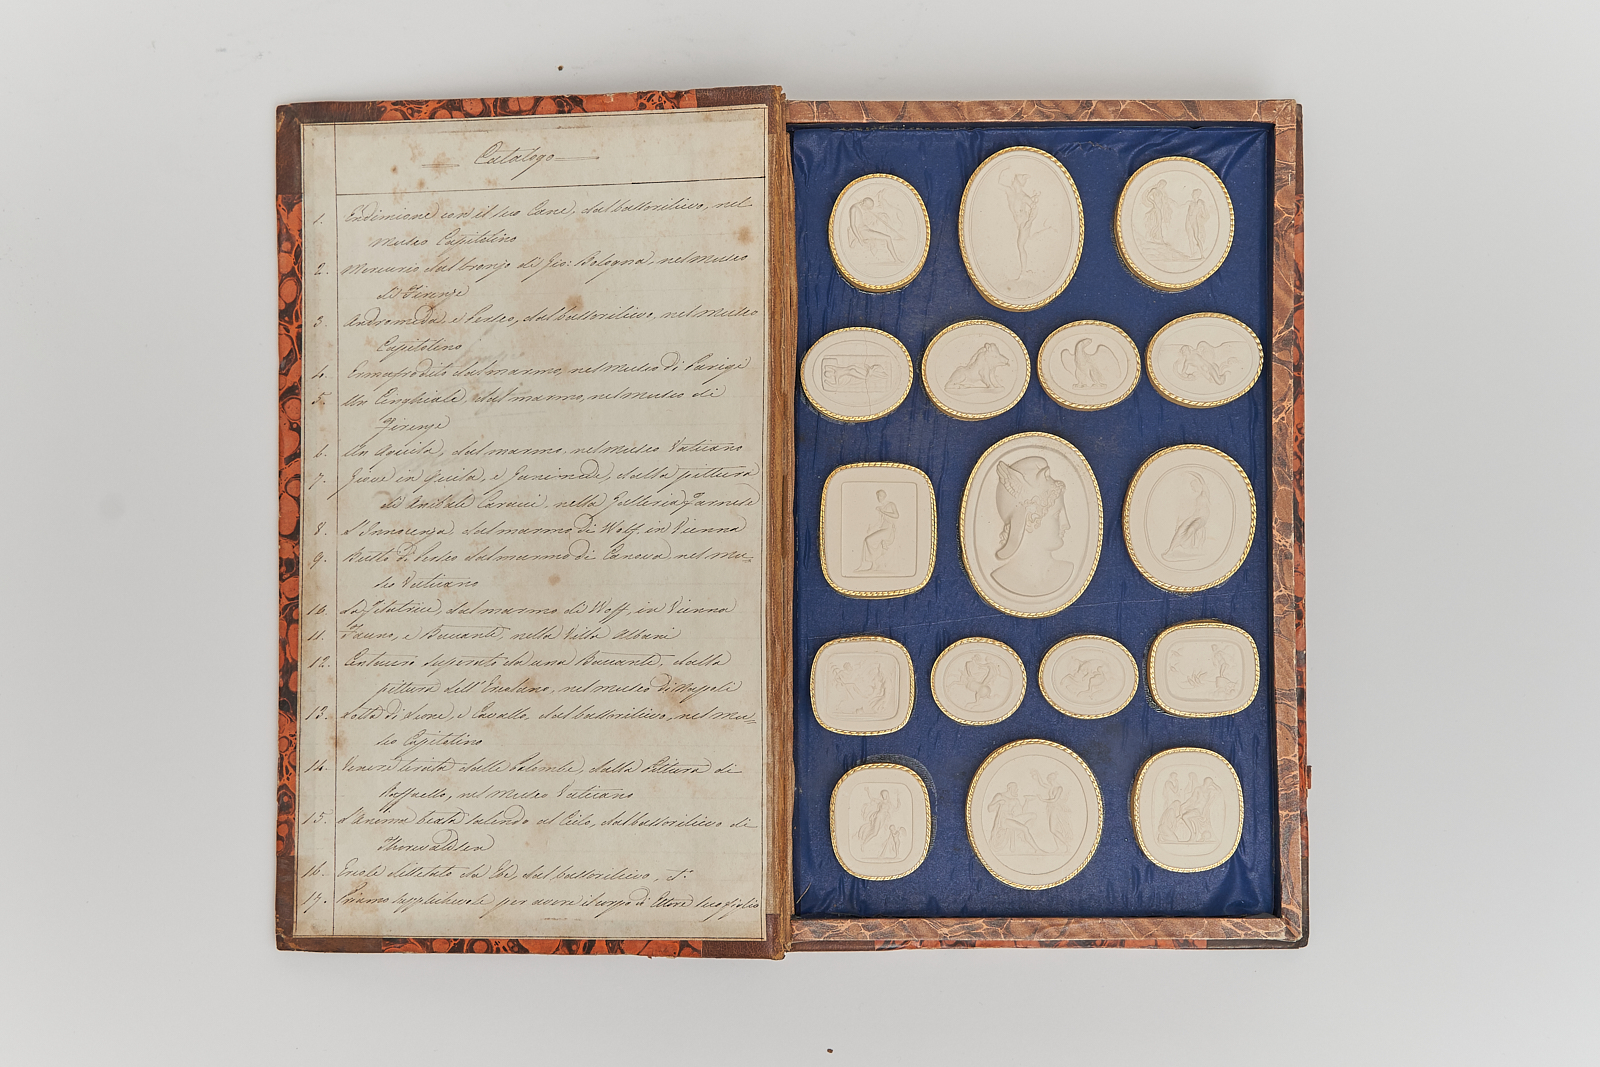 Catalogo
1. Endimione con il suo Cane, dal bassorilievo, nel
Museo Capitolino
2. Mercurio dal bronzo di Gio: Bologna, nel Museo
di Firenze
3. Andromeda, e Perseo, dal bassorilievo, nel Museo
Capitolino
4. Ermafrodito dal marmo, nel Museo di Parigi
5. Un Cinghiale, dal marmo, nel Museo di
Firenze
6. Un Aquila, dal marmo, nel Museo Vaticano
7. Giove in Aquila, e Ganimede, dalla pittura
di Anibale Caracci, nella Galleria Farnese
8. L'Innocenza, dal marmo di Woff, in Vienna
9. Busto di Perseo dal marmo di Canova, nel Mu=
seo Vaticano
10. La dal marmo di Woff, in Vienna
11. Fauno, e Baccante, nella Villa Albani
12. Centauro superato da una Baccante, dalla
pittura dell' Ercolano, nel Museo di Napoli
13. Lotta di Leone, e Cavallo, dal bassorilievo, nel Mu=
seo Capitolino
14. Venere tirata dalle Colombe, dalla Pittura di
Raffaello, nel Museo Vaticano
15. L'Anema beata salendo al Cielo, dal bassorilievo di
Thorwaldsen
16. Ercole disetato da Ebe, dal bassorilievo, d.º
17. Priamo supplichevole per avere il corpo di Ettore suo figlio